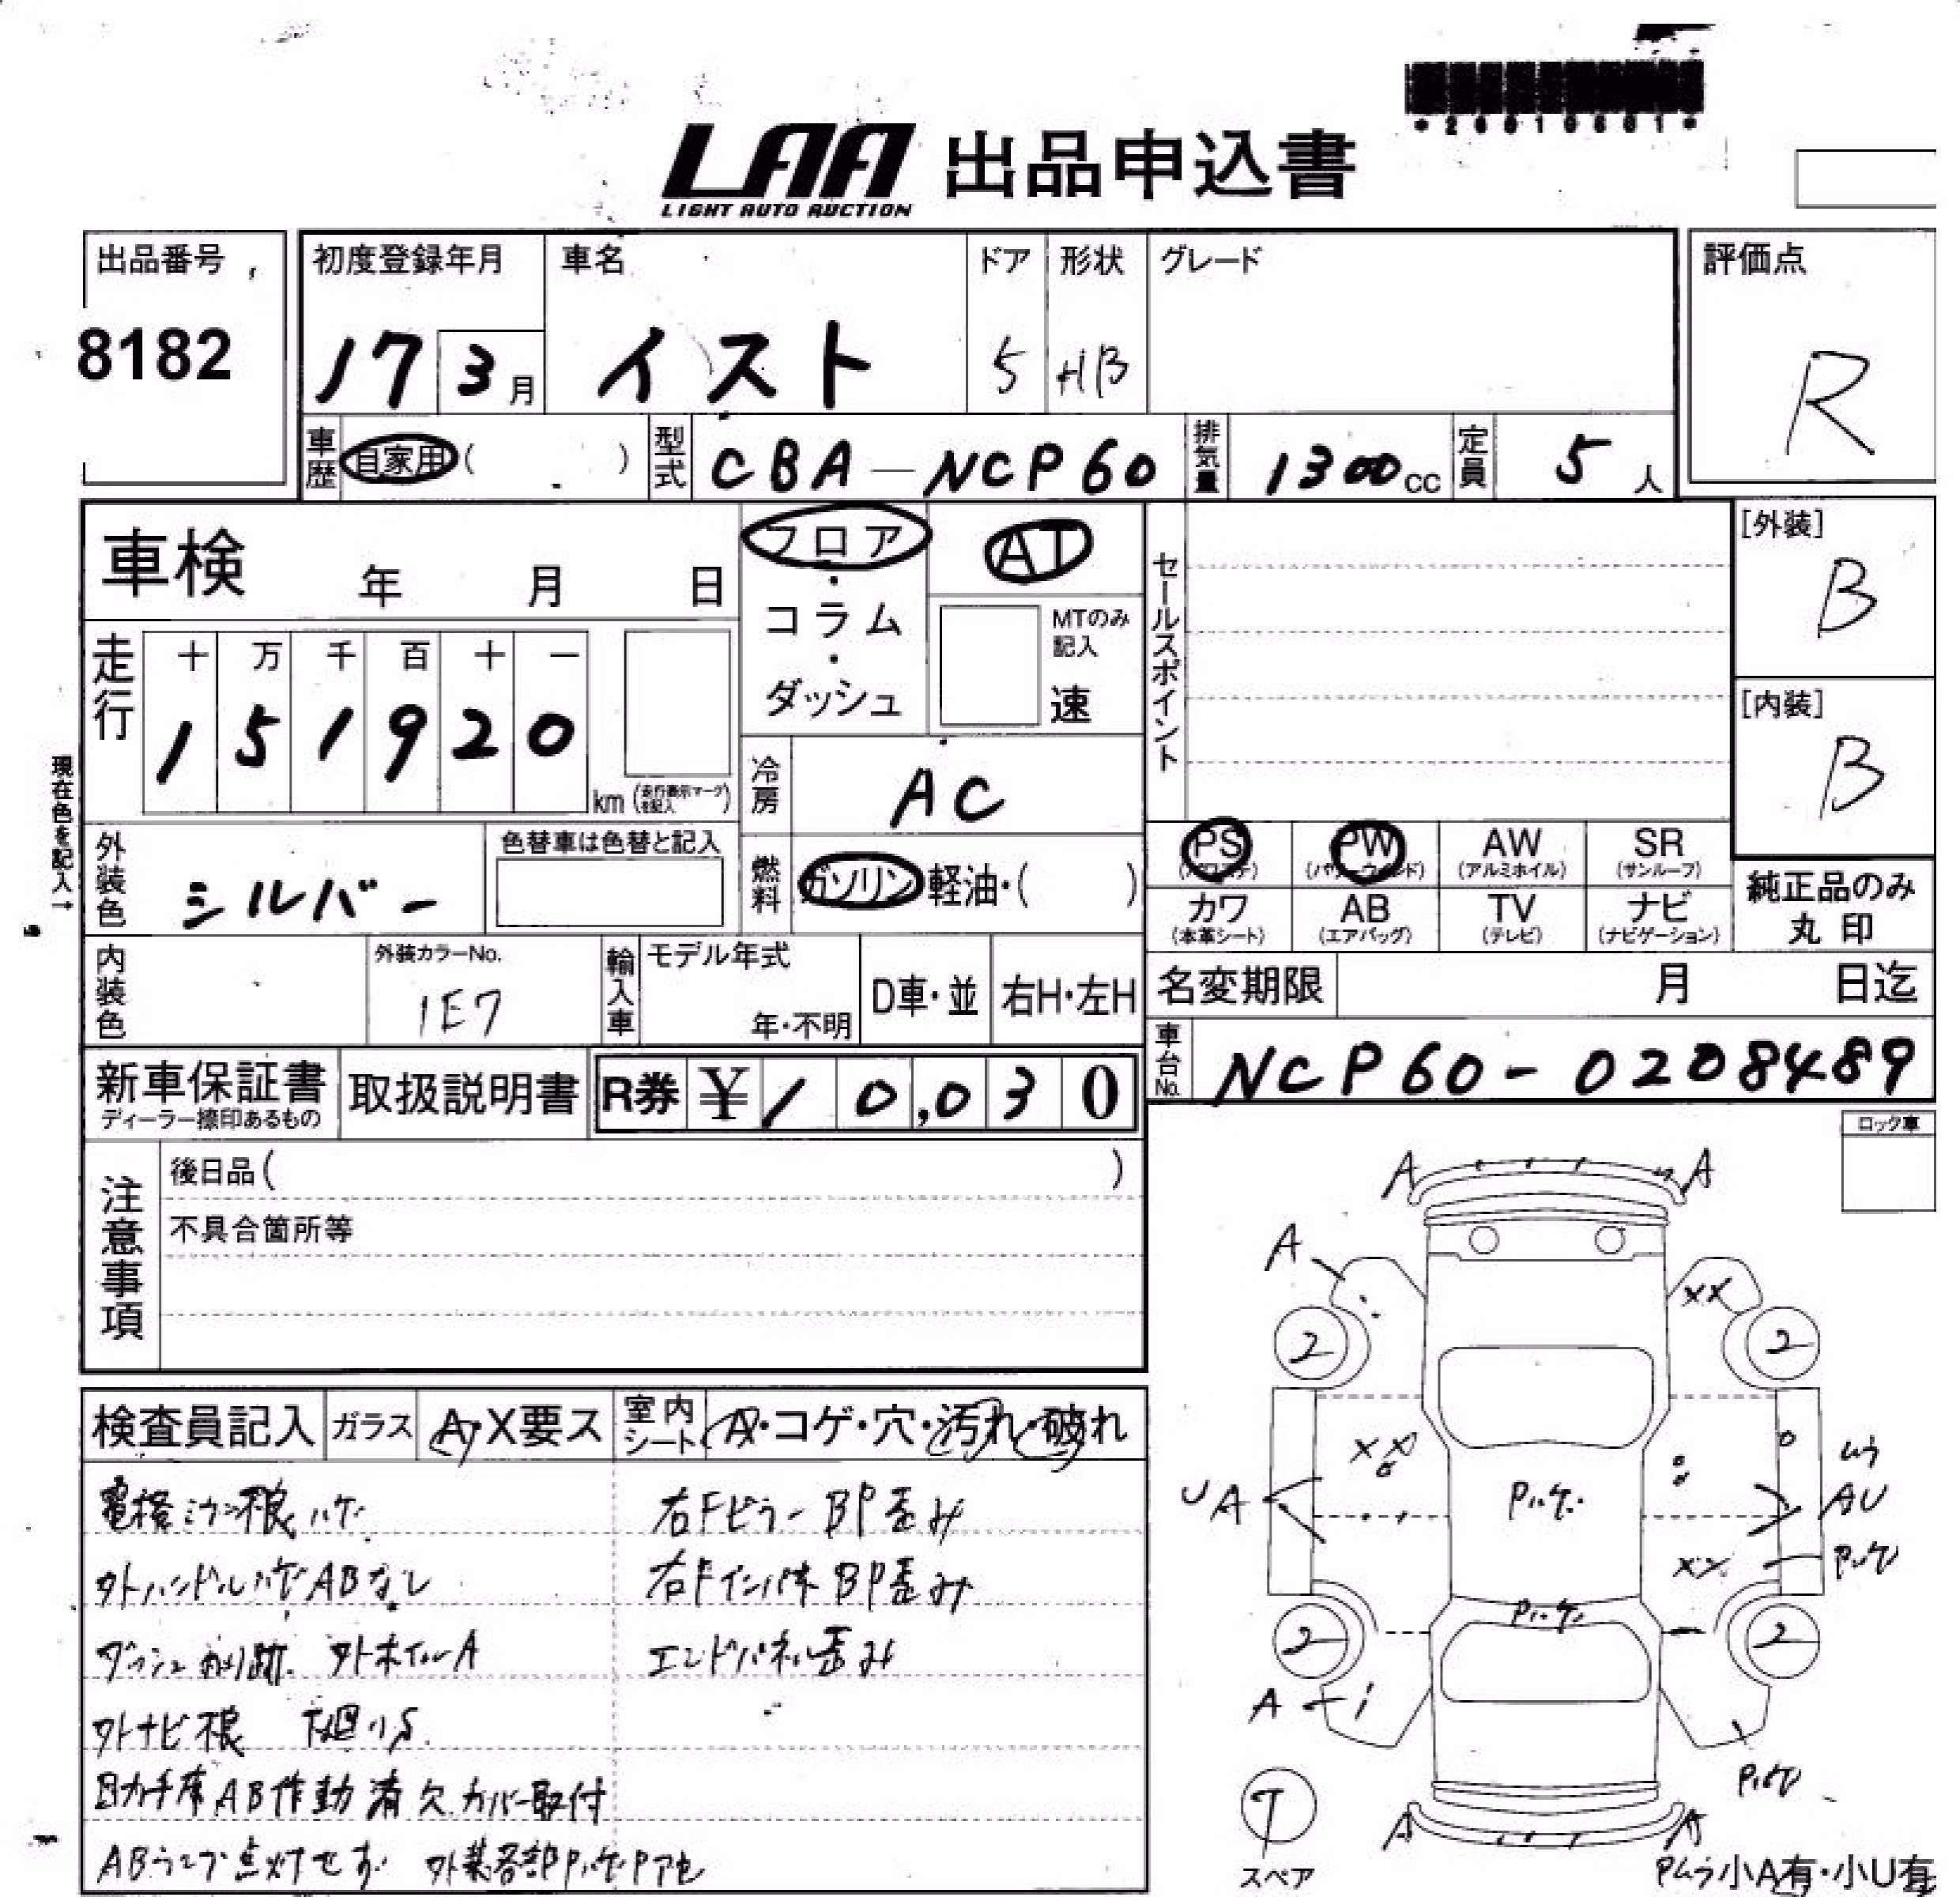 LAA 出品申込書
LIGHT AUTO AUCTION
出品番号
8182
初度登録年月 車名 ドア 形状 グレード
17 3月 イスト 5 HB
評価点
R
車歴 自家用 ( ) 型式 CBA-NCP60 排気量 1300cc 定員 5人
車検 年 月 日
フロア・コラム・ダッシュ
AT
MTのみ記入
速
セールスポイント
[外装]
B
[内装]
B
走行
十 万 千 百 十 一
1 5 1 9 2 0 km (走行表示マークを記入)
冷房 AC
現在色を記入→
外装色 シルバー
色替車は色替と記入
燃料 ガソリン 軽油・( )
PS (パワステ) PW (パワーウインド) AW (アルミホイル) SR (サンルーフ)
カワ (本革シート) AB (エアバッグ) TV (テレビ) ナビ (ナビゲーション)
純正品のみ
丸印
内装色
外装カラーNo.
1E7
輸入車 モデル年式
年・不明
D車・並 右H・左H
名変期限 月 日迄
車台No. NCP60-0208489
新車保証書
ディーラー捺印あるもの
取扱説明書
R券 ¥10,030
ロック車
注意事項
後日品( )
不具合箇所等
検査員記入 ガラス A・X要ス 室内シート A・コゲ・穴・汚れ・破れ
電格ミラー根ハゲ
外ハンドルハゲ ABなし
ダッシュ 跡 外ホイルA
外ナビ根 下廻りS
AB作動済 欠 カバー取付
ABランプ点灯せず 外装各部Pハゲ
右FピラーBP歪み
右FインパネBP歪み
エンドパネル歪み
A A
A XX
2 2
XX
UA
Pハゲ
ムラ
AU
Pハゲ
XX
Pハゲ
2 2
A
Pハゲ
T
スペア
A A
Pムラ 小A有・小U有